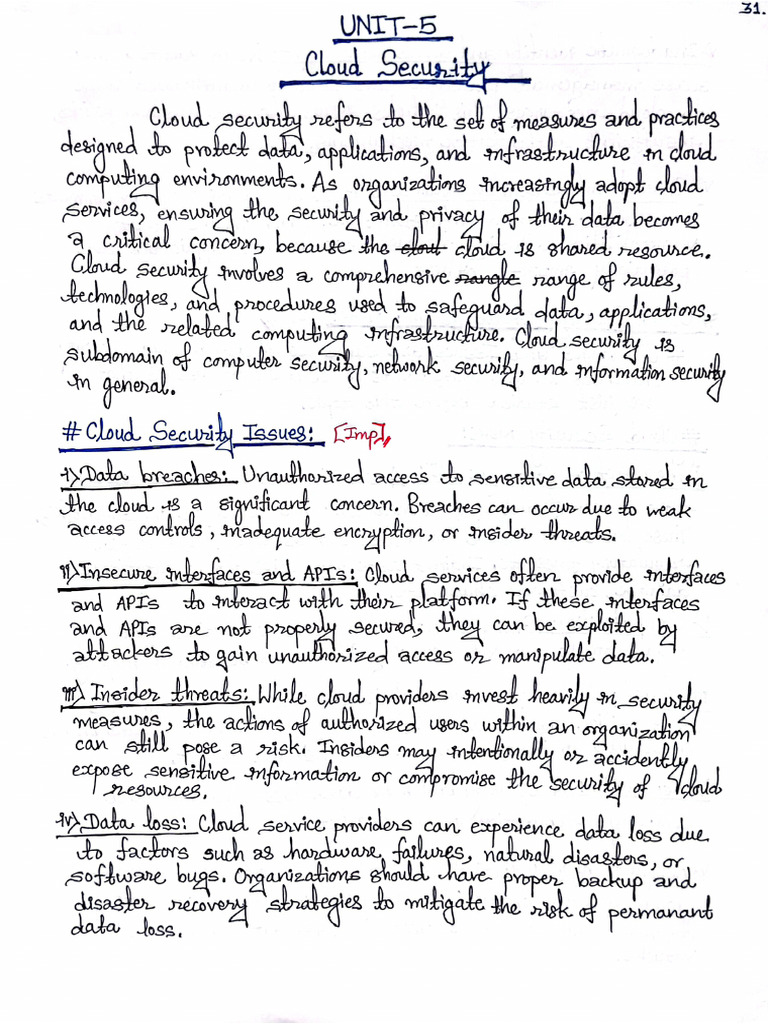 31.
UNIT-5
Cloud Security
Cloud security refers to the set of measures and practices
designed to protect data, applications, and infrastructure in cloud
computing environments. As organizations increasingly adopt cloud
services, ensuring the security and privacy of their data becomes
a critical concern, because the clout cloud is shared resource.
Cloud security involves a comprehensive rangle range of rules,
technologies, and procedures used to safeguard data, applications,
and the related computing infrastructure. Cloud security is
subdomain of computer security, network security, and information security
in general.
# Cloud Security Issues: [Imp]
i) Data breaches: Unauthorized access to sensitive data stored in
the cloud is a significant concern. Breaches can occur due to weak
access controls, inadequate encryption, or insider threats.
ii) Insecure interfaces and APIs: Cloud services often provide interfaces
and APIs to interact with their platform. If these interfaces
and APIs are not properly secured, they can be exploited by
attackers to gain unauthorized access or manipulate data.
iii) Insider threats: While cloud providers invest heavily in security
measures, the actions of authorized users within an organization
can still pose a risk. Insiders may intentionally or accidently
expose sensitive information or compromise the security of cloud
resources.
iv) Data loss: Cloud service providers can experience data loss due
to factors such as hardware, failures, natural disasters, or
software bugs. Organizations should have proper backup and
disaster recovery strategies to mitigate the risk of permanant
data loss.